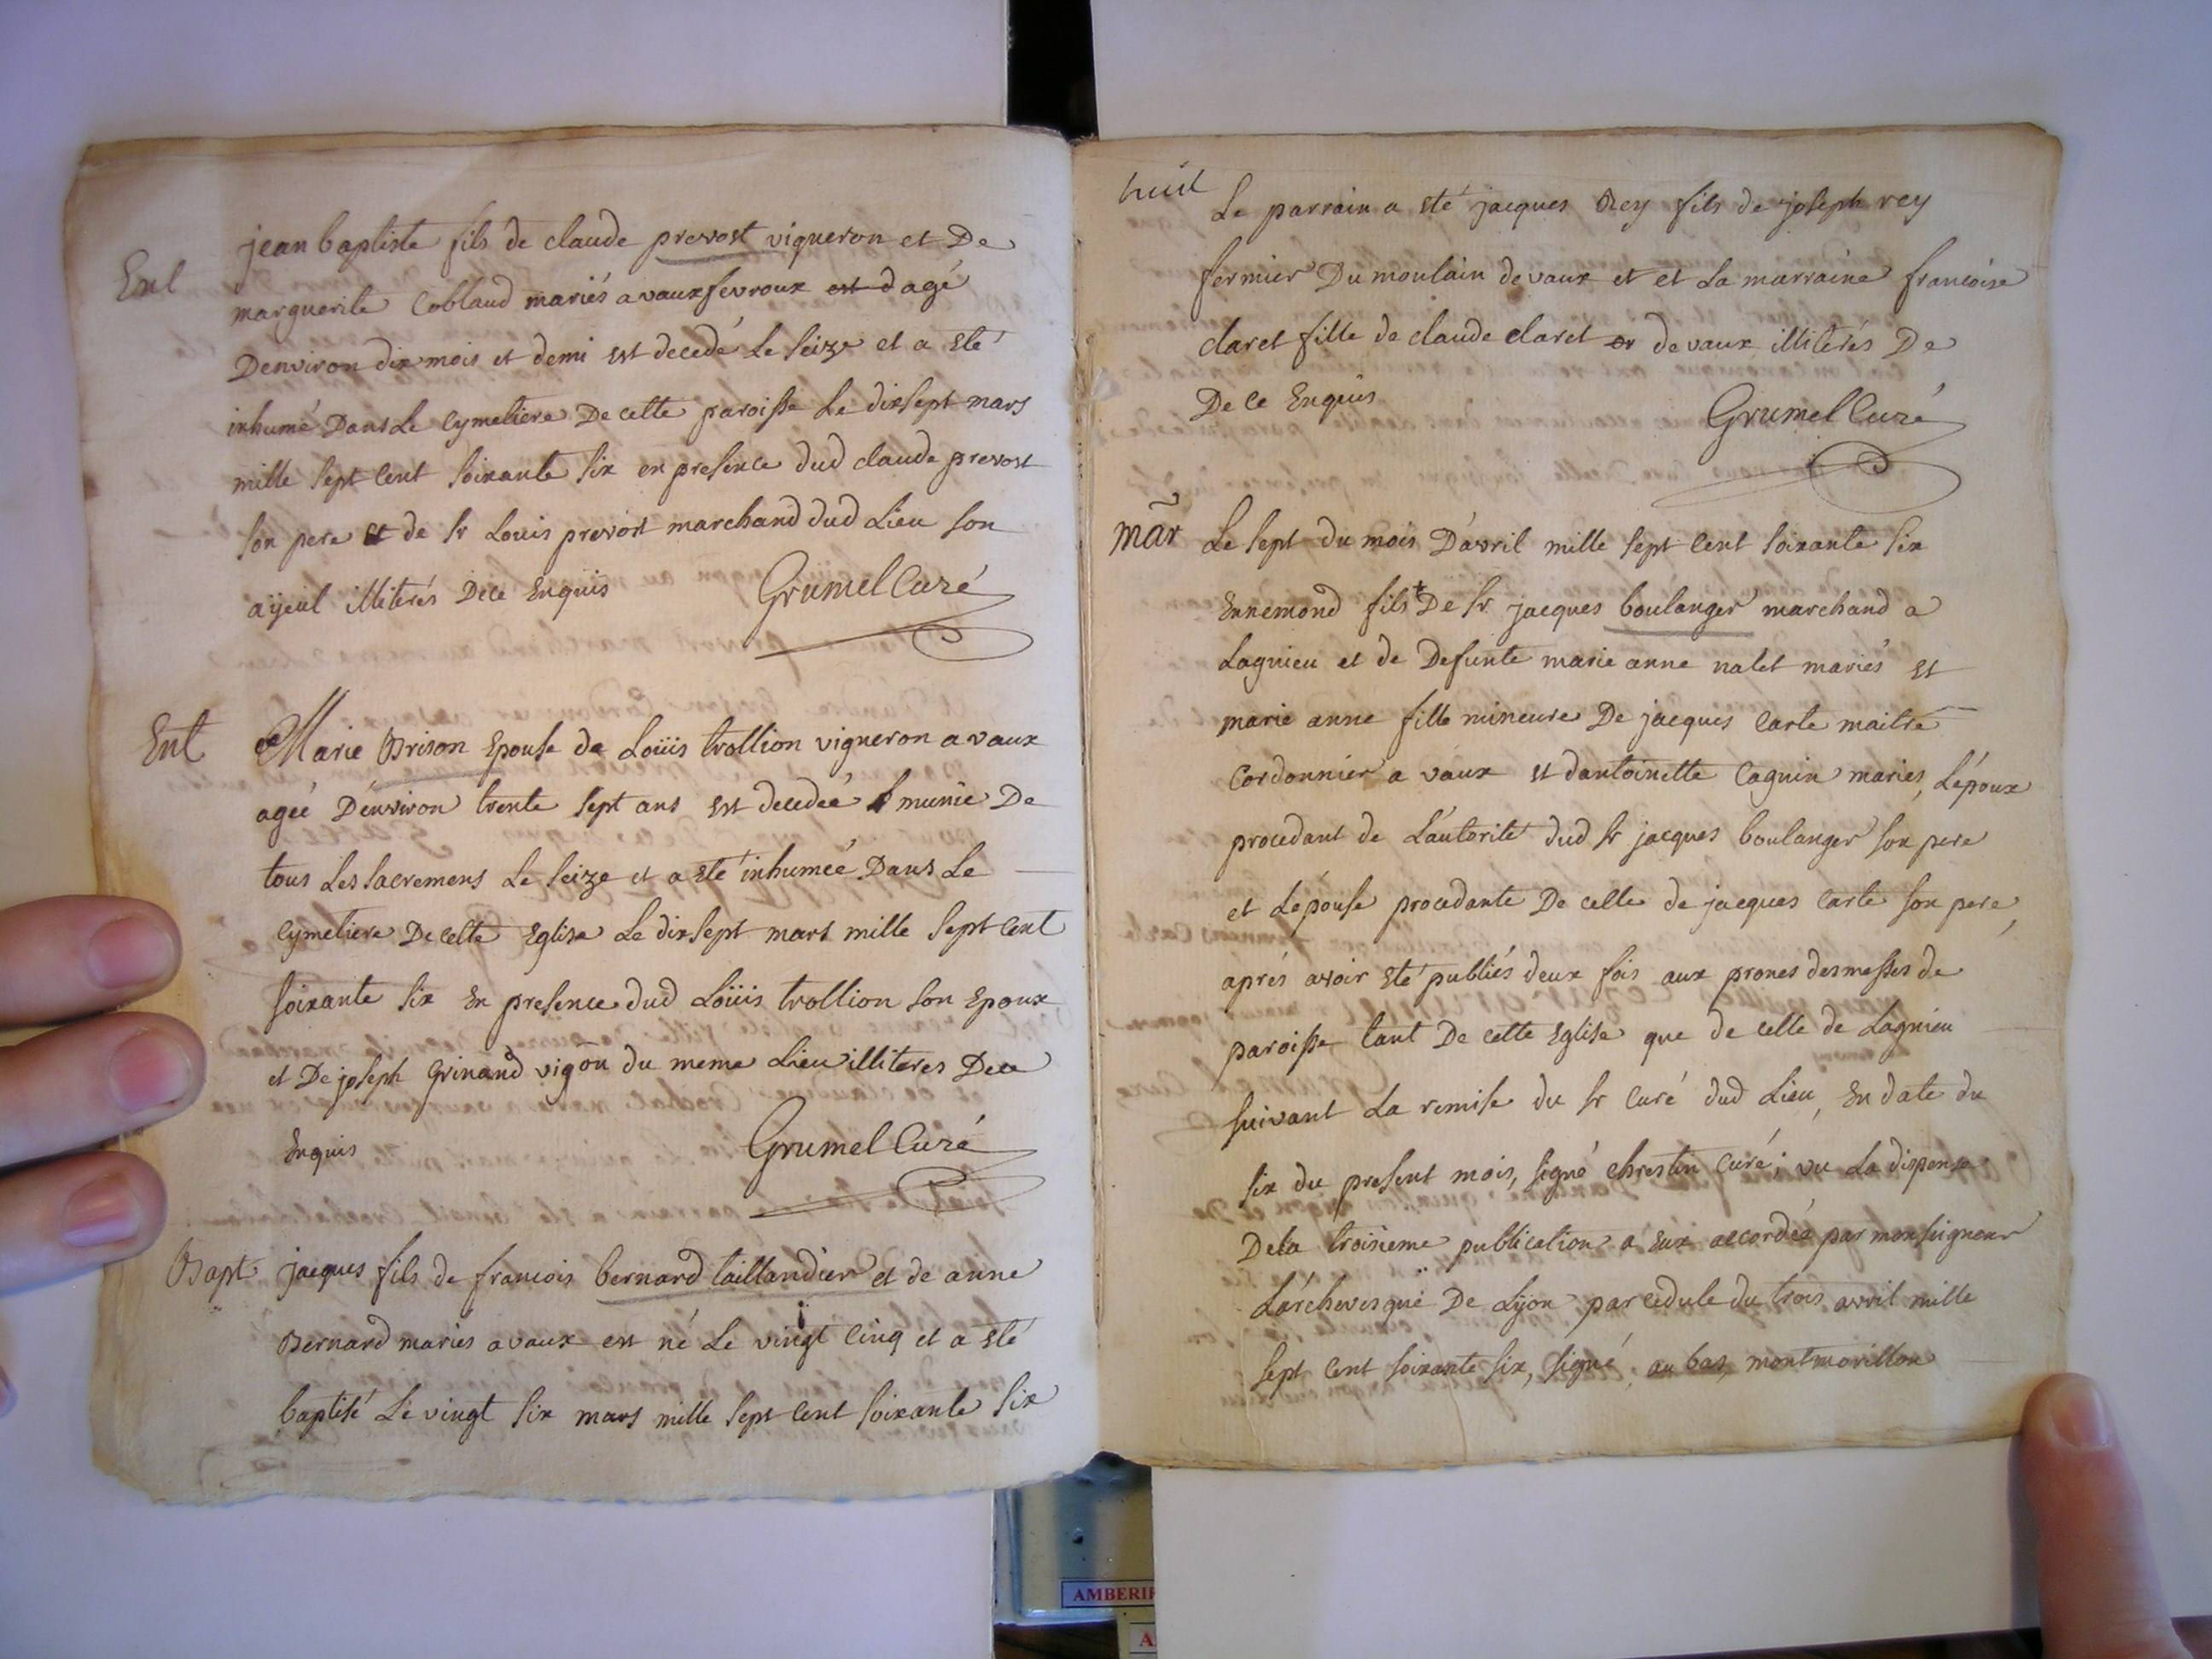 Ent
jean baptiste fils de claude prevost vigneron et De
marguerite Coblaud mariés a vaux fevroux est dagé
Denviron dix mois et demi est decedé Le Seize et a eté
inhumé Dans Le Cymetiere De cette paroisse Le dixsept mars
mille sept cent soixante six en presence dud claude prevost
son pere et de sr Louis prevost marchand dud Lieu son
ayeul illiterés Dece Enquis
Grumel Curé
Ent
Marie Brison Epouse de Loüis trollion vigneron a vaux
ageé Denviron trente sept ans est decedeé munie De
tous Les sacremens Le seize et a eté inhumeé Dans Le
Cymetiere De cette Eglise Le dixsept mars mille sept cent
soixante six En presence dud Loüis trollion son Epoux
et De joseph Grinand vigōn du meme Lieu illiteres Dece
Enquis
Grumel Curé
Bapt
jacques fils de francois bernard taillandier et de anne
Bernard mariés a vaux est né Le vingt cinq et a eté
baptisé Le vingt six mars mille sept cent soixante six
huit
Le parrain a eté jacques Rey fils de joseph rey
fermier Du moulain de vaux et et La marraine francoise
claret fille de claude claret de vaux illiterés De
De ce Enquis
Grumel Curé
mãr
Le sept du mois D'avril mille sept cent soixante six
Ennemond fils + De sr jacques boulanger marchand a
Lagnieu et de Defunte marie anne nalet mariés et
marie anne fille mineure De jacques Carte maitre
Cordonnier a vaux et dantoinette Caguin mariés, L'époux
procedant de L'autorité dud sr jacques boulanger son pere
et L'épouse procedante De celle de jacques Carte son pere,
aprés avoir eté publiés deux fois aux prones des messes de
paroisse tant De cette Eglise que de celle de Lagnieu
suivant La remise du sr Curé dud Lieu, En date du
six du present mois, signé chrestin Curé; vu La dispense
De la troisieme publication a Eux accordée par monseigneur
L'archevesque De Lÿon par cedule du trois avril mille
sept cent soixante six, signé, au bas, montmorillon
AMBERI
A